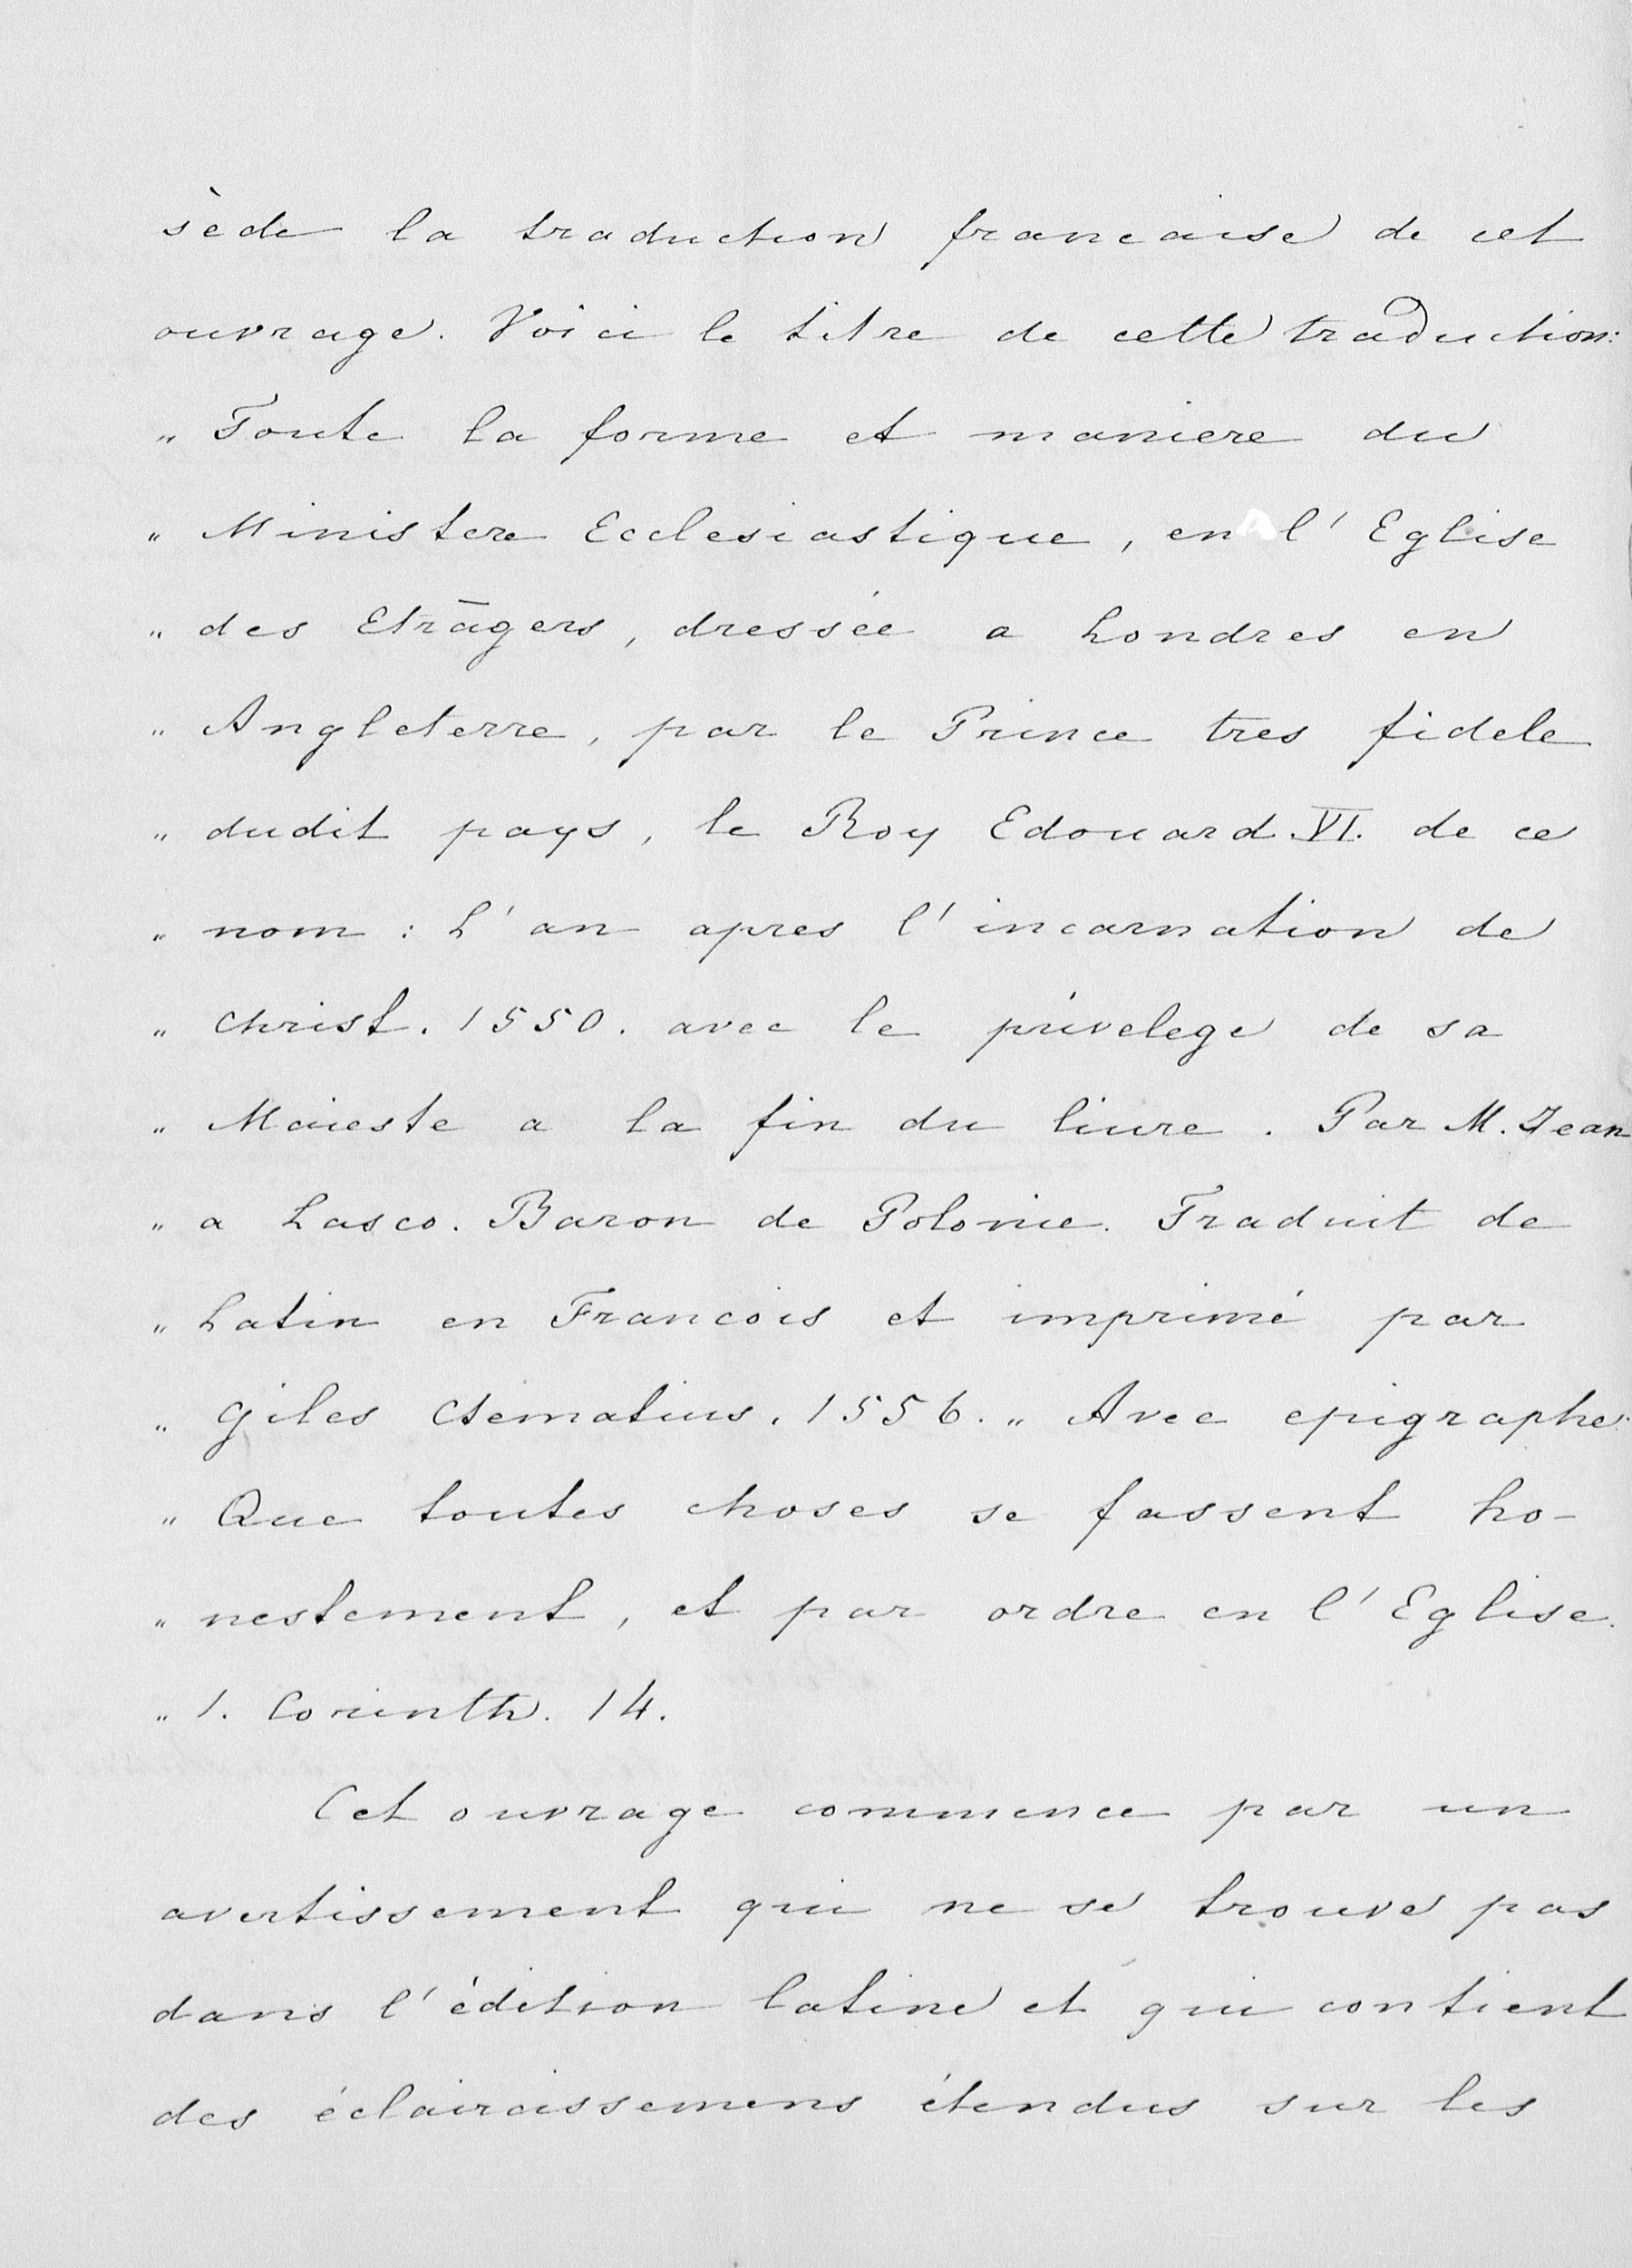 sède la traduction francaise de cet
ouvrage. Voici le titre de cette traduction:
„ Toute la forme et maniere du
„ Ministere Ecclesiastique, en l'Eglise
„ des Etrāgers, dressée a Londres en
„ Angleterre, par le Prince tres fidele
„ dudit pays, le Roy Edouard VI. de ce
„ nom : L'an apres l'incarnation de
„ Christ. 1550. avec le privelege de sa
„ Maieste a la fin du liure. Par M. Jean
„ a Lasco. Baron de Polonie. Traduit de
„ Latin en Francois et imprimé par
„ Giles Ctematius. 1556. „ Avec epigraphe:
„ Que toutes choses se fassent ho-
„ nestement, et par ordre en l'Eglise.
„ 1. Corinth. 14.
Cet ouvrage commence par un
avertissement qui ne se trouve pas
dans l'édition latine et qui contient
des éclaircissemens étendus sur les